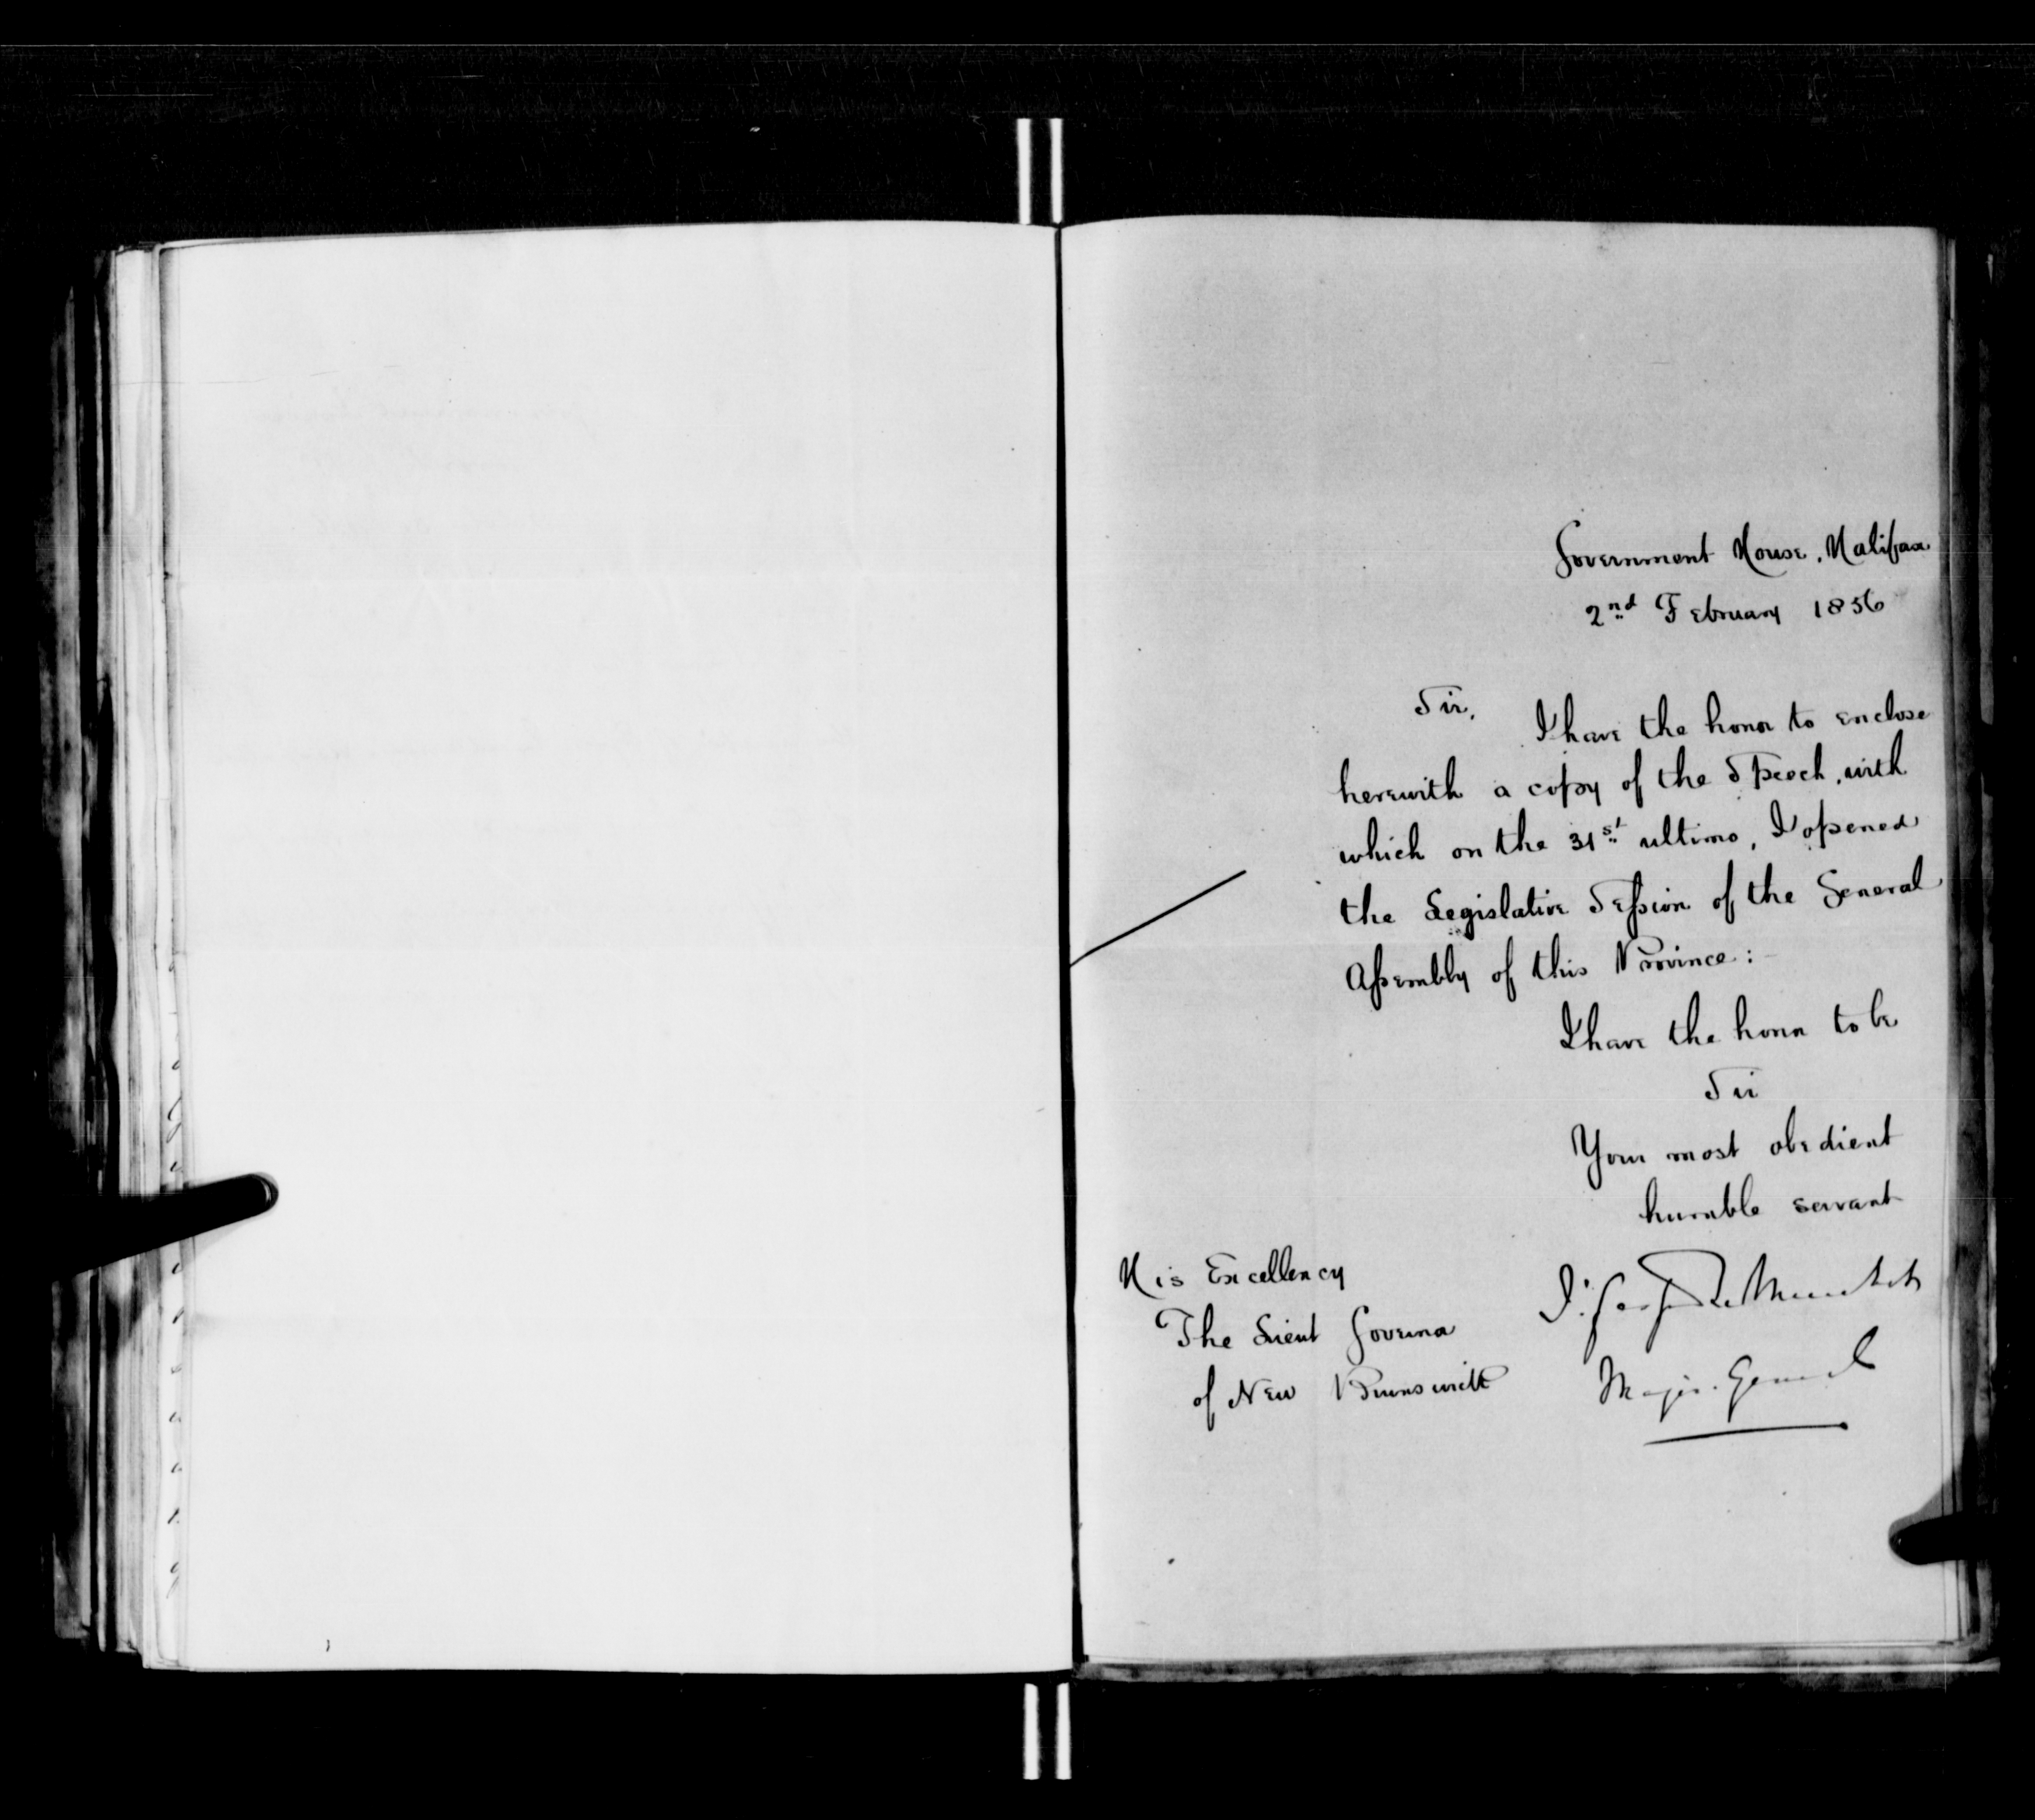 Government House, Halifax
2nd February 1856
Sir,
I have the honor to enclose
herewith a copy of the Speech, with
which on the 31st ultimo, I opened
the Legislative Session of the General
Assembly of this Province:
I have the honor to be
Sir
Your most obedient
humble servant
His Excellency
The Lieut Governor
of New Brunswick
J. Gaspard Le Marchant
Major General